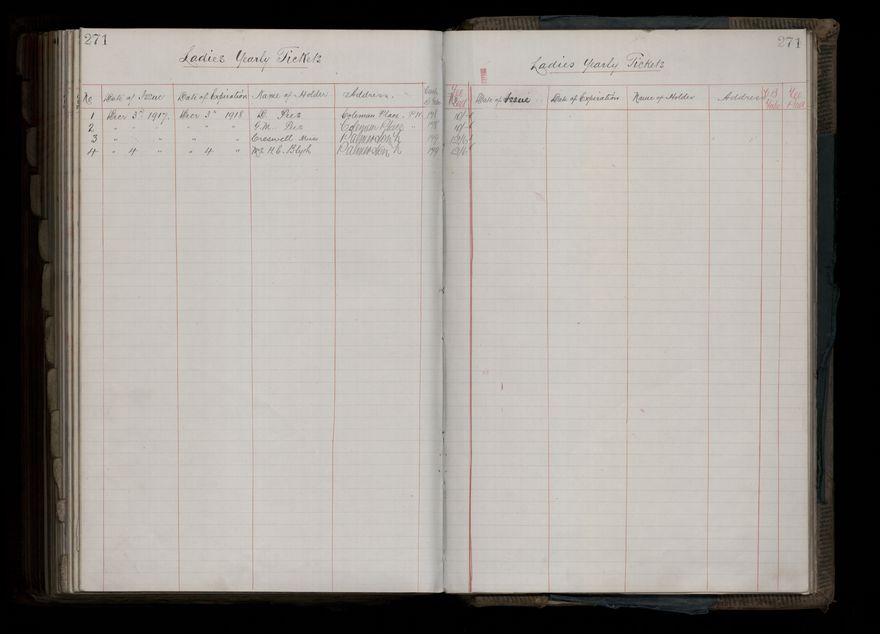 271
Ladies Yearly Tickets
No Date of Issue Date of Expiration Name of Holder Address Cash Fee
1 Decr 3rd 1917 Decr 3rd 1918 D. Peez Coleman Place 198 10/-
2 " " " " " " G.M. Peez Coleman Place " 198 10/-
3 " " " " " " Creswell Miss Palmerston N 199 12/6
4 " 4 " " 4 " Mrs H.C. Blyth Palmerston N 199 12/6
271
Ladies Yearly Tickets
Date of Issue Date of Expiration Name of Holder Address C.B. Folio Fee Paid